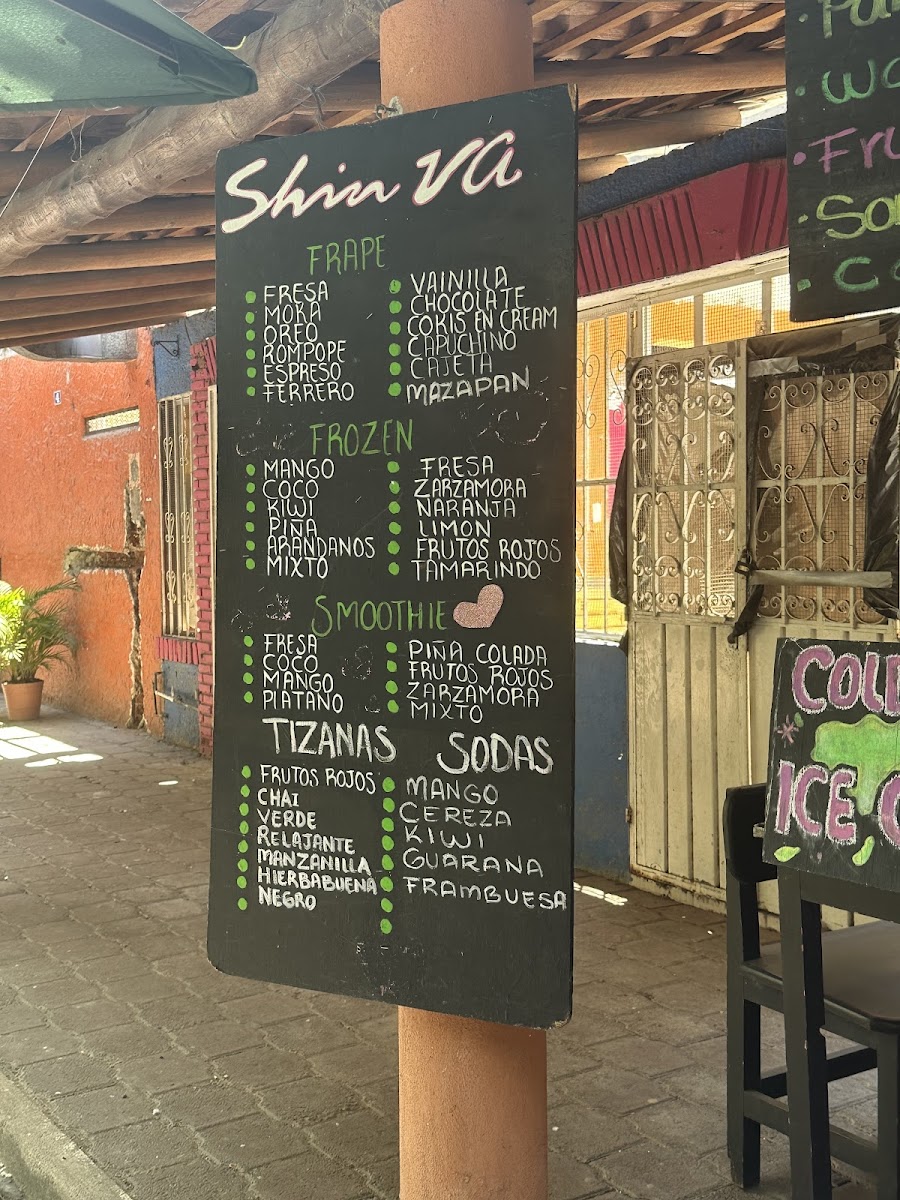 Shin VA
FRAPE
FRESA
MOKA
OREO
ROMPOPE
ESPRESO
FERRERO
VAINILLA
CHOCOLATE
COKIS EN CREAM
CAPUCHINO
CAJETA
MAZAPAN
FROZEN
MANGO
COCO
KIWI
PIÑA
ARANDANOS
MIXTO
FRESA
ZARZAMORA
NARANJA
LIMON
FRUTOS ROJOS
TAMARINDO
SMOOTHIE
FRESA
COCO
MANGO
PLATANO
PIÑA COLADA
FRUTOS ROJOS
ZARZAMORA
MIXTO
TIZANAS
FRUTOS ROJOS
CHAI
VERDE
RELAJANTE
MANZANILLA
HIERBABUENA
NEGRO
SODAS
MANGO
CEREZA
KIWI
GUARANA
FRAMBUESA
COLD
ICE